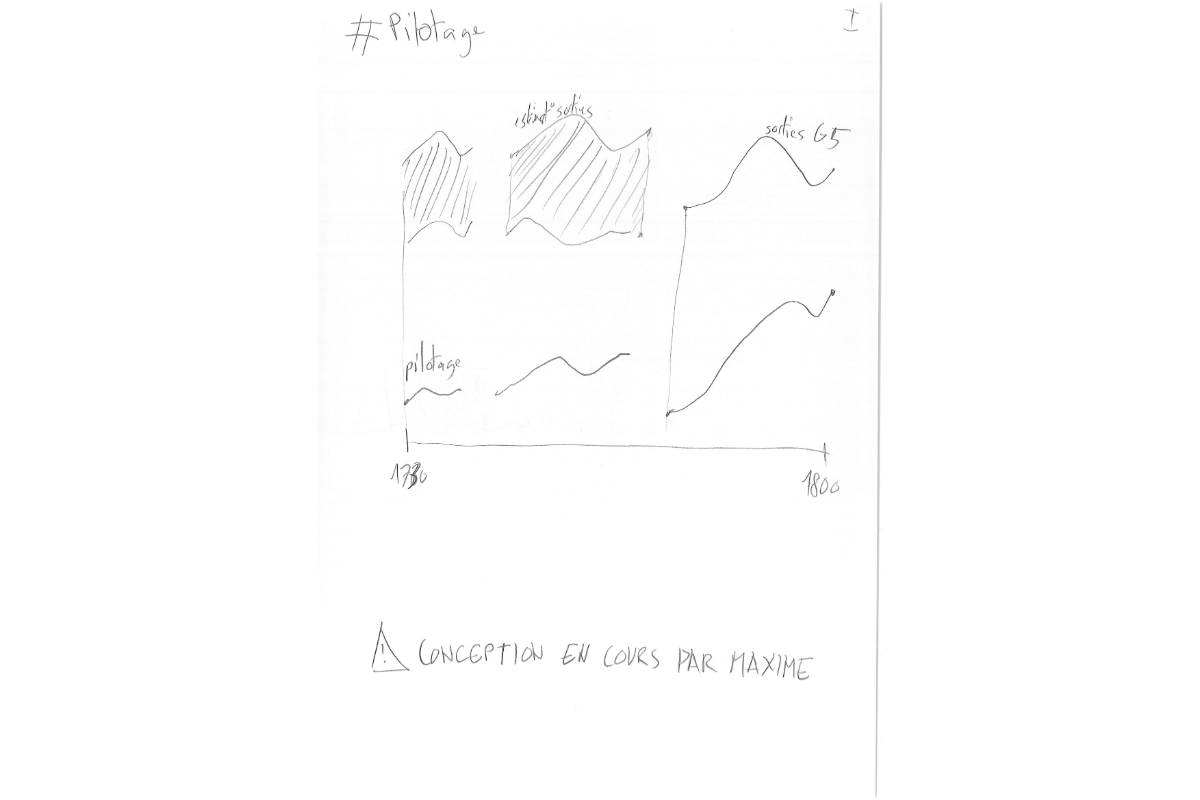 # Pilotage
I
sorties
sorties G5
pilotage
1800
⚠ CONCEPTION EN COURS PAR MAXIME